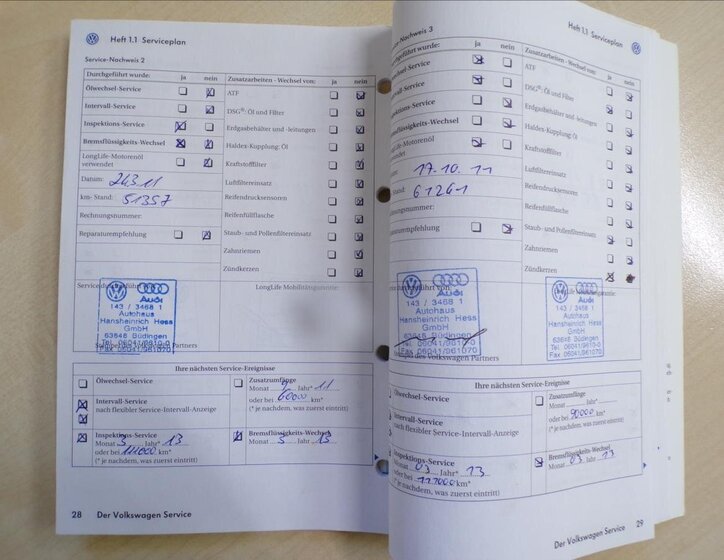 Heft 1.1 Serviceplan
Service-Nachweis 2
Durchgeführt wurde: ja nein
Ölwechsel-Service
Intervall-Service
Inspektions-Service
Bremsflüssigkeits-Wechsel
LongLife-Motorenöl
verwendet
Datum: 24.3.11
km-Stand: 51357
Rechnungsnummer:
Reparaturempfehlung
Zusatzarbeiten - Wechsel von: ja nein
ATF
DSG®: Öl und Filter
Erdgasbehälter und -leitungen
Haldex-Kupplung: Öl
Kraftstofffilter
Luftfiltereinsatz
Reifendrucksensoren
Reifenfüllflasche
Staub- und Pollenfiltereinsatz
Zahnriemen
Zündkerzen
LongLife Mobilitätsgarantie:
Audi
143 / 3468 1
Autohaus
Hansheinrich Hess
GmbH
63648 Büdingen
Tel. 06041/9610-0
Fax 06041/961070
Ihre nächsten Service-Ereignisse
Ölwechsel-Service
Intervall-Service
nach flexibler Service-Intervall-Anzeige
Inspektions-Service
Monat 3 Jahr* 13
oder bei km*
(* je nachdem, was zuerst eintritt)
Zusatzumfänge
Monat Jahr* 11
oder bei 60000 km*
(* je nachdem, was zuerst eintritt)
Bremsflüssigkeits-Wechsel
Monat 3 Jahr 13
28 Der Volkswagen Service
Heft 1.1 Serviceplan
Nachweis 3
wurde: ja nein
-Service
-Service
-Service
-Wechsel
Motorenöl
17.10.11
Stand: 61261
Zusatzarbeiten - Wechsel von: ja nein
ATF
DSG®: Öl und Filter
Erdgasbehälter und -leitungen
Haldex-Kupplung: Öl
Kraftstofffilter
Luftfiltereinsatz
Reifendrucksensoren
Reifenfüllflasche
Staub- und Pollenfiltereinsatz
Zahnriemen
Zündkerzen
Audi
143 / 3468 1
Autohaus
Hansheinrich Hess
GmbH
63648 Büdingen
Tel. 06041/9610-0
Fax 06041/961070
Audi
143 / 3468 1
Autohaus
Hansheinrich Hess
GmbH
63648 Büdingen
Tel. 06041/9610-0
Fax 06041/961070
des Volkswagen Partners
Ihre nächsten Service-Ereignisse
Ölwechsel-Service
Intervall-Service
nach flexibler Service-Intervall-Anzeige
Inspektions-Service
Monat 03 Jahr* 13
oder bei km*
(* je nachdem, was zuerst eintritt)
Zusatzumfänge
Monat Jahr*
oder bei 90000 km*
(* je nachdem, was zuerst eintritt)
Bremsflüssigkeits-Wechsel
Monat 03 Jahr 13
Der Volkswagen Service 29